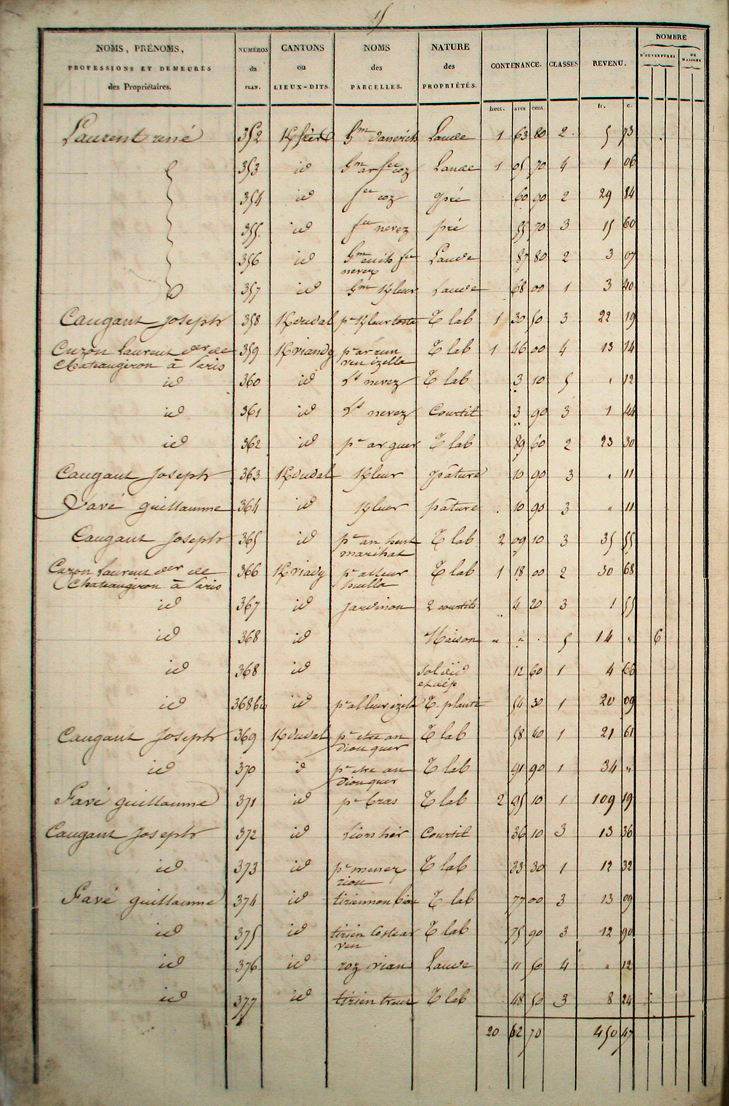 15
NOMS, PRÉNOMS, PROFESSIONS ET DEMEURES des Propriétaires. | NUMÉROS du PLAN. | CANTONS ou LIEUX-DITS. | NOMS des PARCELLES. | NATURE des PROPRIÉTÉS. | CONTENANCE. | CLASSES | REVENU. | NOMBRE D'OUVERTURES DE MAISONS
hect. ares cent. fr. c.
Laurent rené 352 Lande 1 63 80 2 5 73
353 id Gm ar fer coz Lande 1 05 70 4 1 06
354 id fer coz pré 60 90 2 29 84
355 id fer nevez pré 55 70 3 15 60
356 id Gm creis fer nevez Lande 87 80 2 3 07
357 id Gm Kfleur Lande 68 00 1 3 40
Caugant Joseph 358 Kdudal Tlab 1 30 50 3 22 19
Cuzon Laurent der de Chateaugiron à Paris 359 Kviandy pr ar run ven izella Tlab 1 46 00 4 13 14
id 360 id nevez Tlab 3 10 5 " 12
id 361 id nevez Courtil 3 90 3 1 44
id 362 id pr ar guer Tlab 89 60 2 23 30
Caugant Joseph 363 Kdudal Kleur pâture 10 90 3 " 11
favé guillaume 364 id Kleur pâture 10 90 3 " 11
Caugant Joseph 365 id pr an hent marchat Tlab 2 09 10 3 35 55
Cuzon Laurent der de Chateaugiron à Paris 366 Kviady pr alleur huella Tlab 1 18 00 2 30 68
id 367 id jardinou 2 courtils 4 20 3 1 55
id 368 id Maison " " . 5 14 " 6
id 368 id sol du et dep 12 60 1 4 66
id 368bis id pr alleur izela T. planté 54 30 1 20 09
Caugant Joseph 369 Kdudal pr etre an diou guer Tlab 58 40 1 21 61
id 370 id pr etre an diou guer Tlab 91 90 1 34 "
Favé guillaume 371 id pr bras Tlab 2 95 10 1 109 19
Caugant Joseph 372 id liors hir Courtil 36 10 3 13 36
id 373 id pr menez riou Tlab 33 30 1 12 32
Favé guillaume 374 id Tlab 77 00 3 13 09
id 375 id tirien coste ar ven Tlab 75 90 3 12 90
id 376 id roz vian Lande 11 50 4 " 12
id 377 id tirien treuz Tlab 48 50 3 8 24
20 62 70 450 47